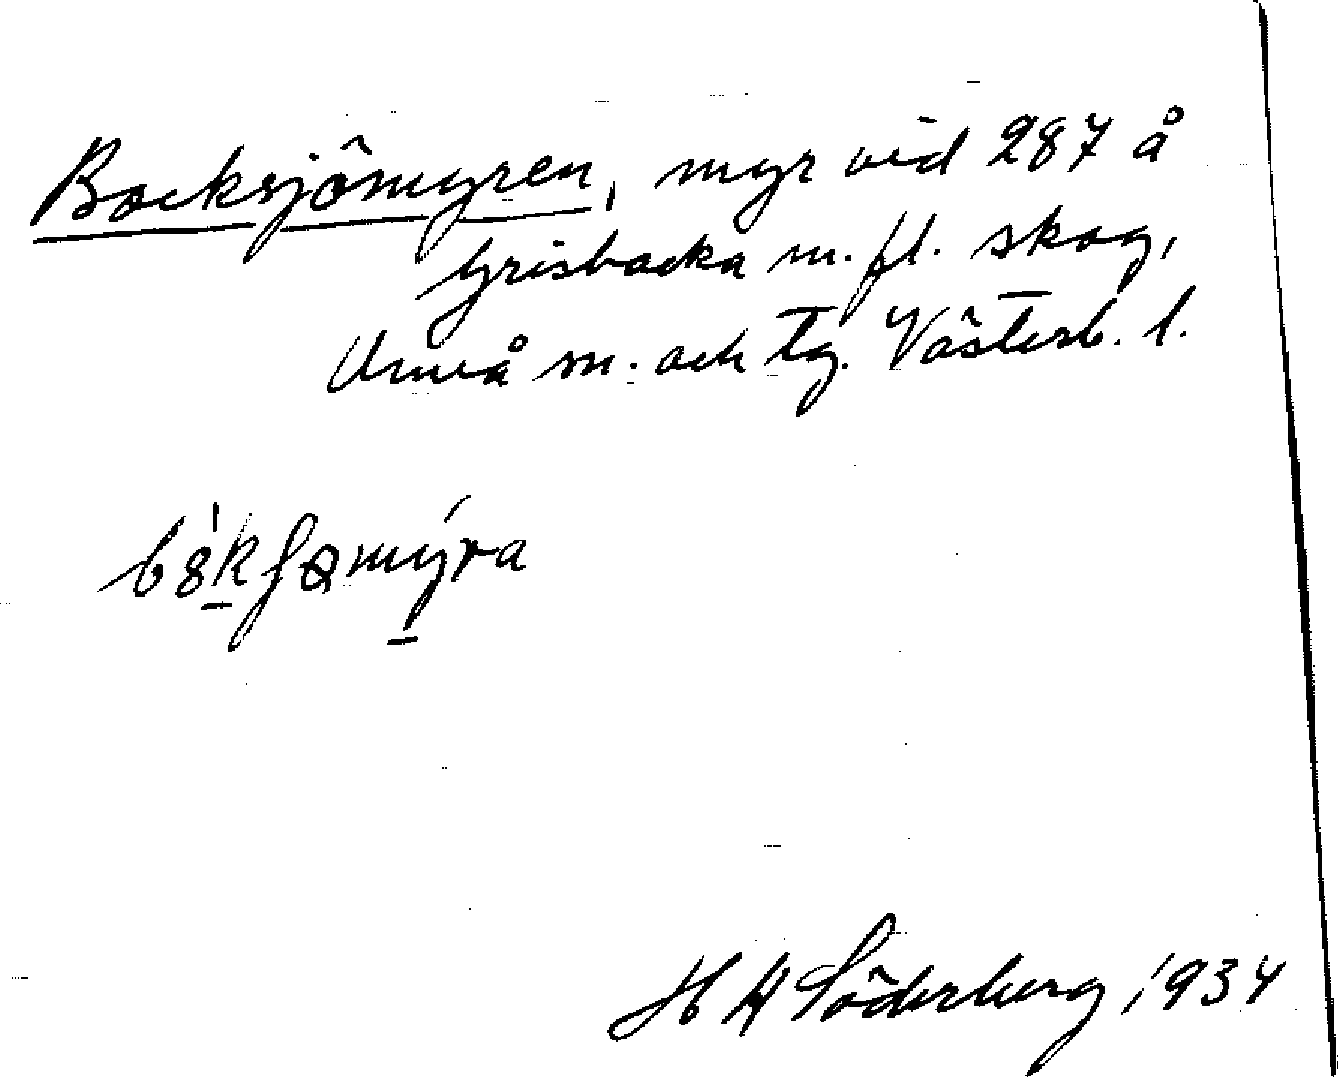 Bocksjömyren, myr vid 287 å
Grisbacka m. fl. skog,
Umeå sn. och tg. Västerb. l.
H H Söderberg 1934